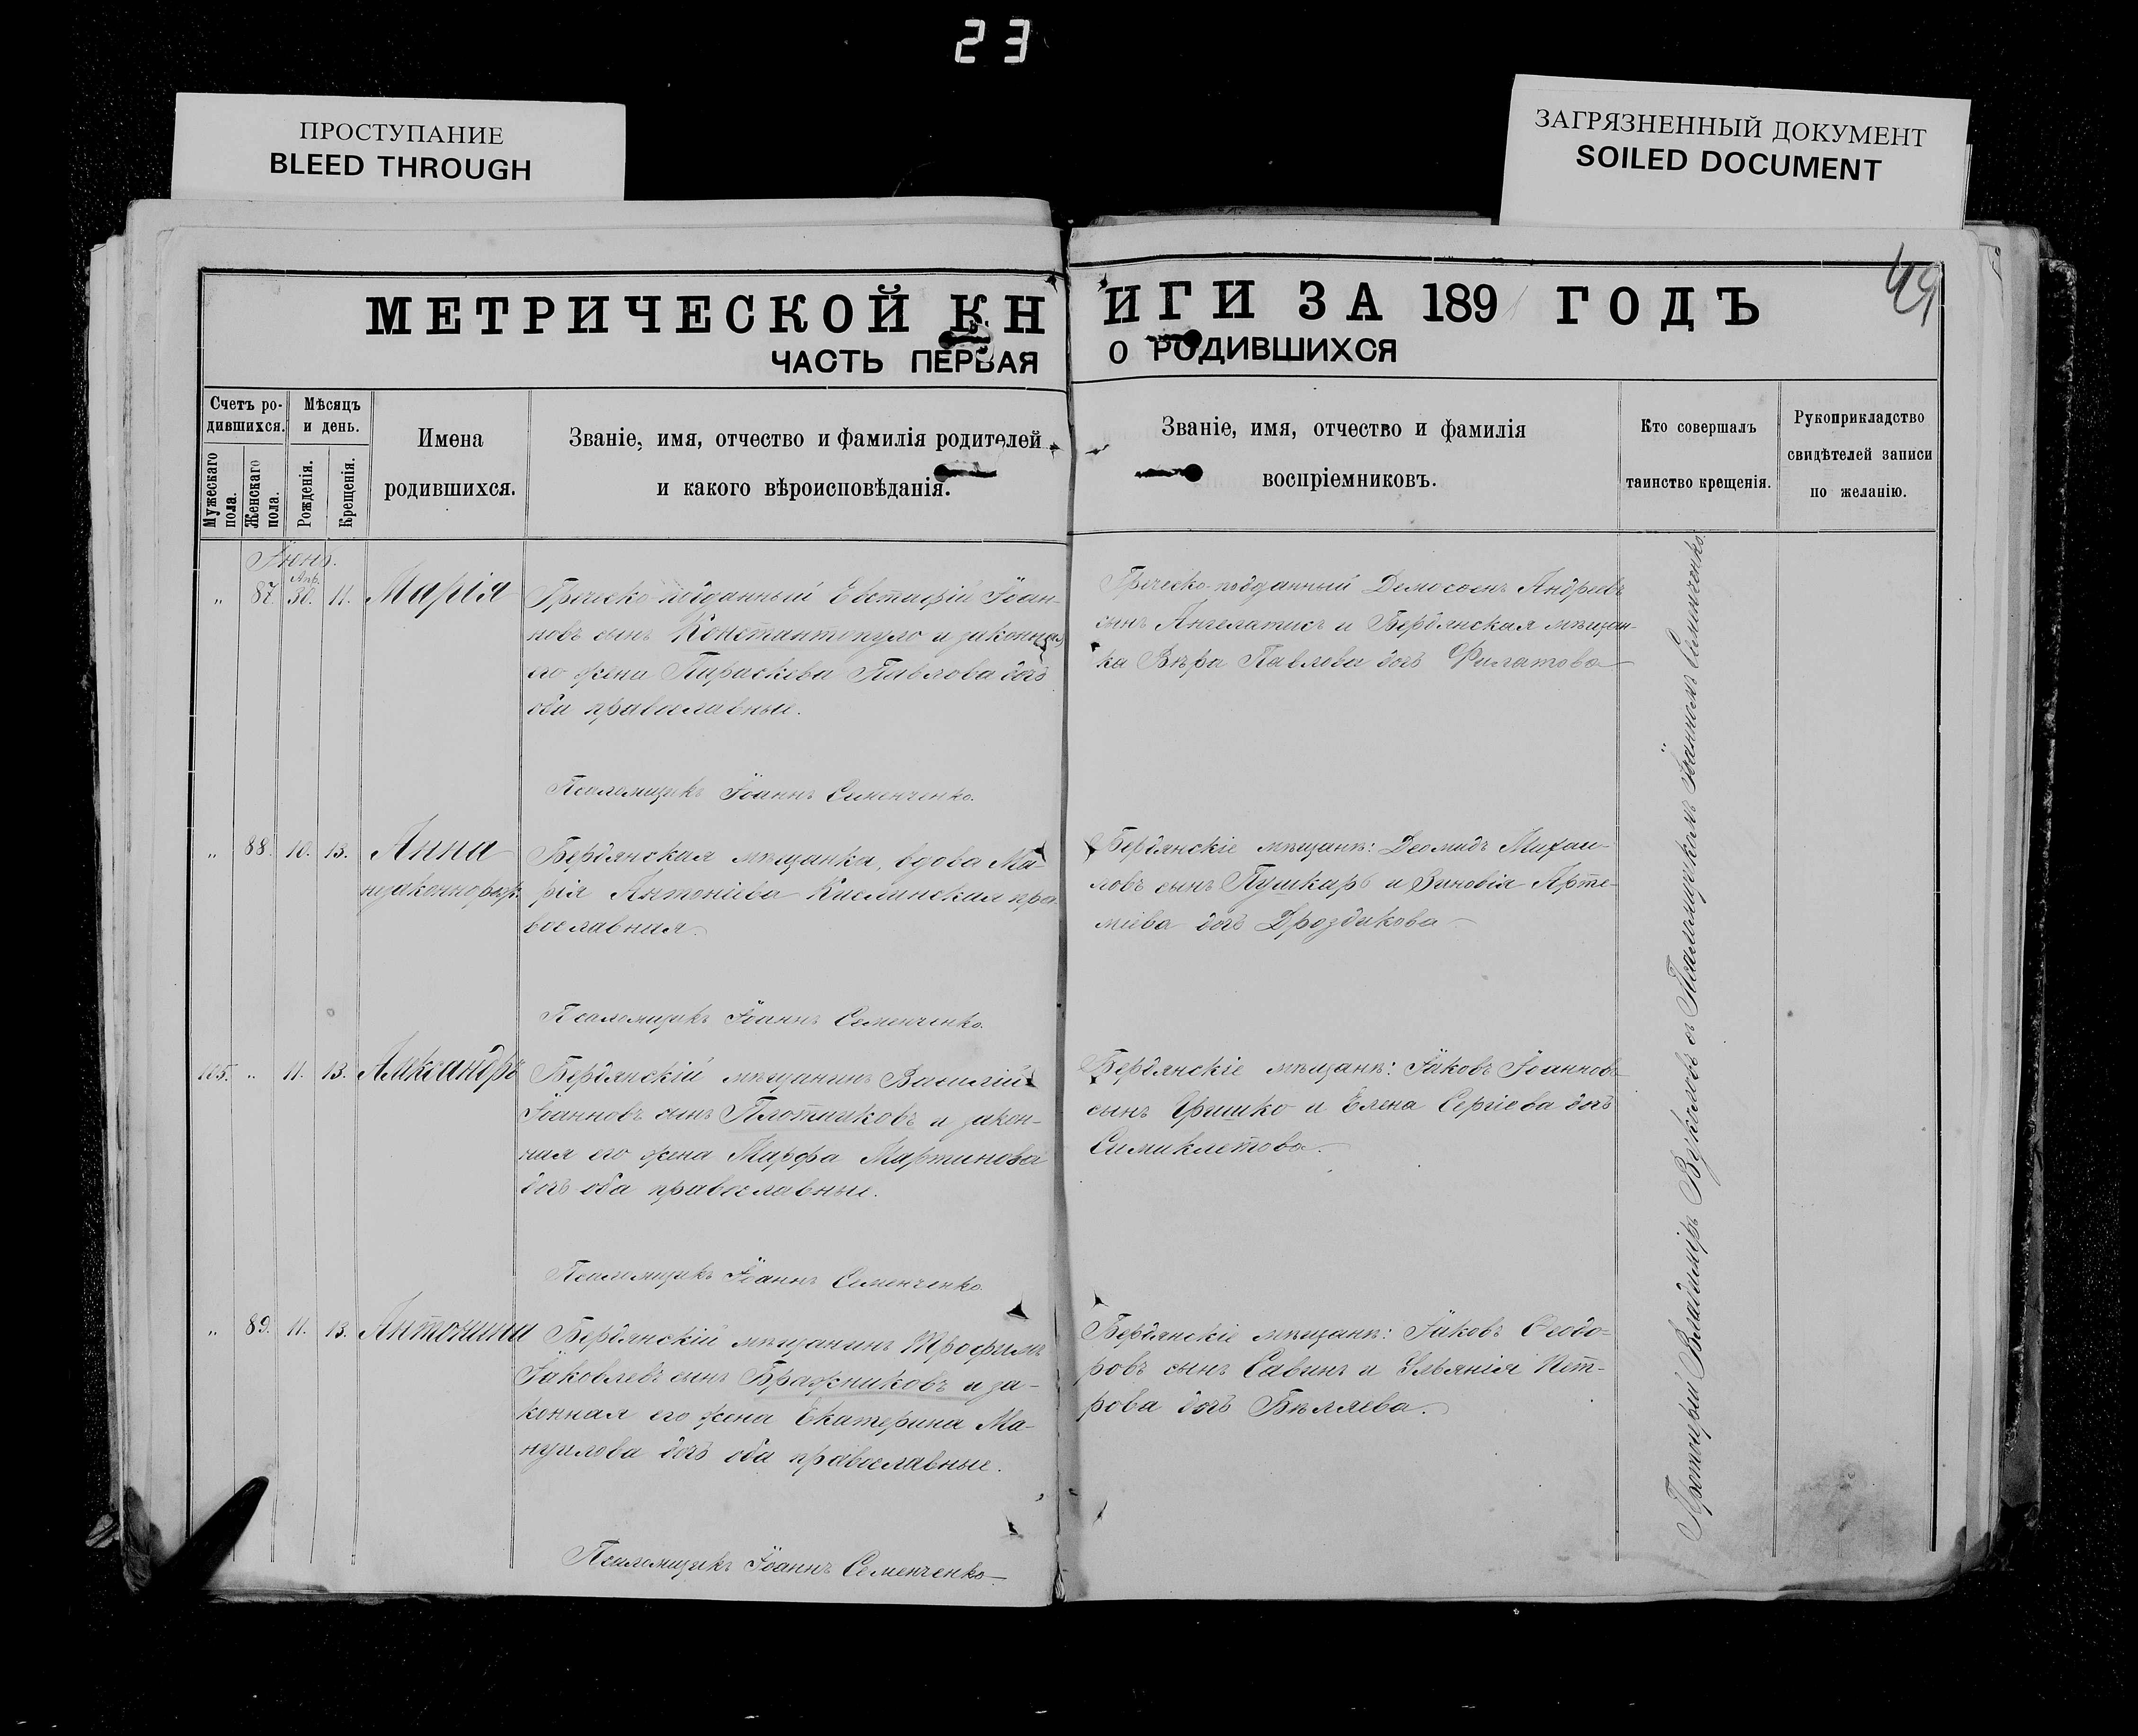 23
ПРОСТУПАНИЕ
BLEED THROUGH
ЗАГРЯЗНЕННЫЙ ДОКУМЕНТ
SOILED DOCUMENT
49
МЕТРИЧЕСКОЙ КНИГИ ЗА 1891 ГОДЪ
ЧАСТЬ ПЕРВАЯ О РОДИВШИХСЯ
Счетъ ро-
дившихся.
Мужескаго пола.
Женскаго пола.
Мѣсяцъ
и день.
Рожденія.
Крещенія.
Имена
родившихся.
Званіе, имя, отчество и фамилія родителей
и какого вѣроисповѣданія.
Званіе, имя, отчество и фамилія
воспріемниковъ.
Кто совершалъ
таинство крещенія.
Рукоприкладство
свидѣтелей записи
по желанію.
Іюнь.
Апр.
„ 87. 30. 11. Марія
Греческо-подданный Евстафій Іоан-
новъ сынъ Константопуло и законная
его жена Параскева Павлова дочь
оба православные.
Псаломщикъ Іоаннъ Семенченко.
Греческо-подданный Демосѳенъ Андреевъ
сынъ Ангелатисъ и Бердянская мѣщан-
ка Вѣра Павлова дочь Филатова
„ 88. 10. 13. Анна
незаконнорожд.
Бердянская мѣщанка, вдова Ма-
рія Антоніева Кислинская пра-
вославная.
Псаломщикъ Іоаннъ Семенченко.
Бердянскіе мѣщане: Деомидъ Михаи-
ловъ сынъ Пушкарь и Зиновія Арте-
міева дочь Дроздикова
105. „ 11. 13. Александръ
Бердянскій мѣщанинъ Василій
Іоанновъ сынъ Плотниковъ и закон-
ная его жена Марфа Мартинова
дочь оба православные.
Псаломщикъ Іоаннъ Семенченко.
Бердянскіе мѣщане: Іаковъ Іоанновъ
сынъ Гришко и Елена Сергіева дочь
Симиклетова.
„ 89. 11. 13. Антонина
Бердянскій мѣщанинъ Трофимъ
Іаковлевъ сынъ Бражниковъ и за-
конная его жена Екатерина Ма-
нуилова дочь оба православные.
Псаломщикъ Іоаннъ Семенченко
Бердянскіе мѣщане: Іаковъ Ѳеодо-
ровъ сынъ Савинъ и Ульянія Пет-
рова дочь Бѣляева.
Протоіерей Владиміръ Вуколовъ съ Псаломщикомъ Іоанномъ Семенченко.